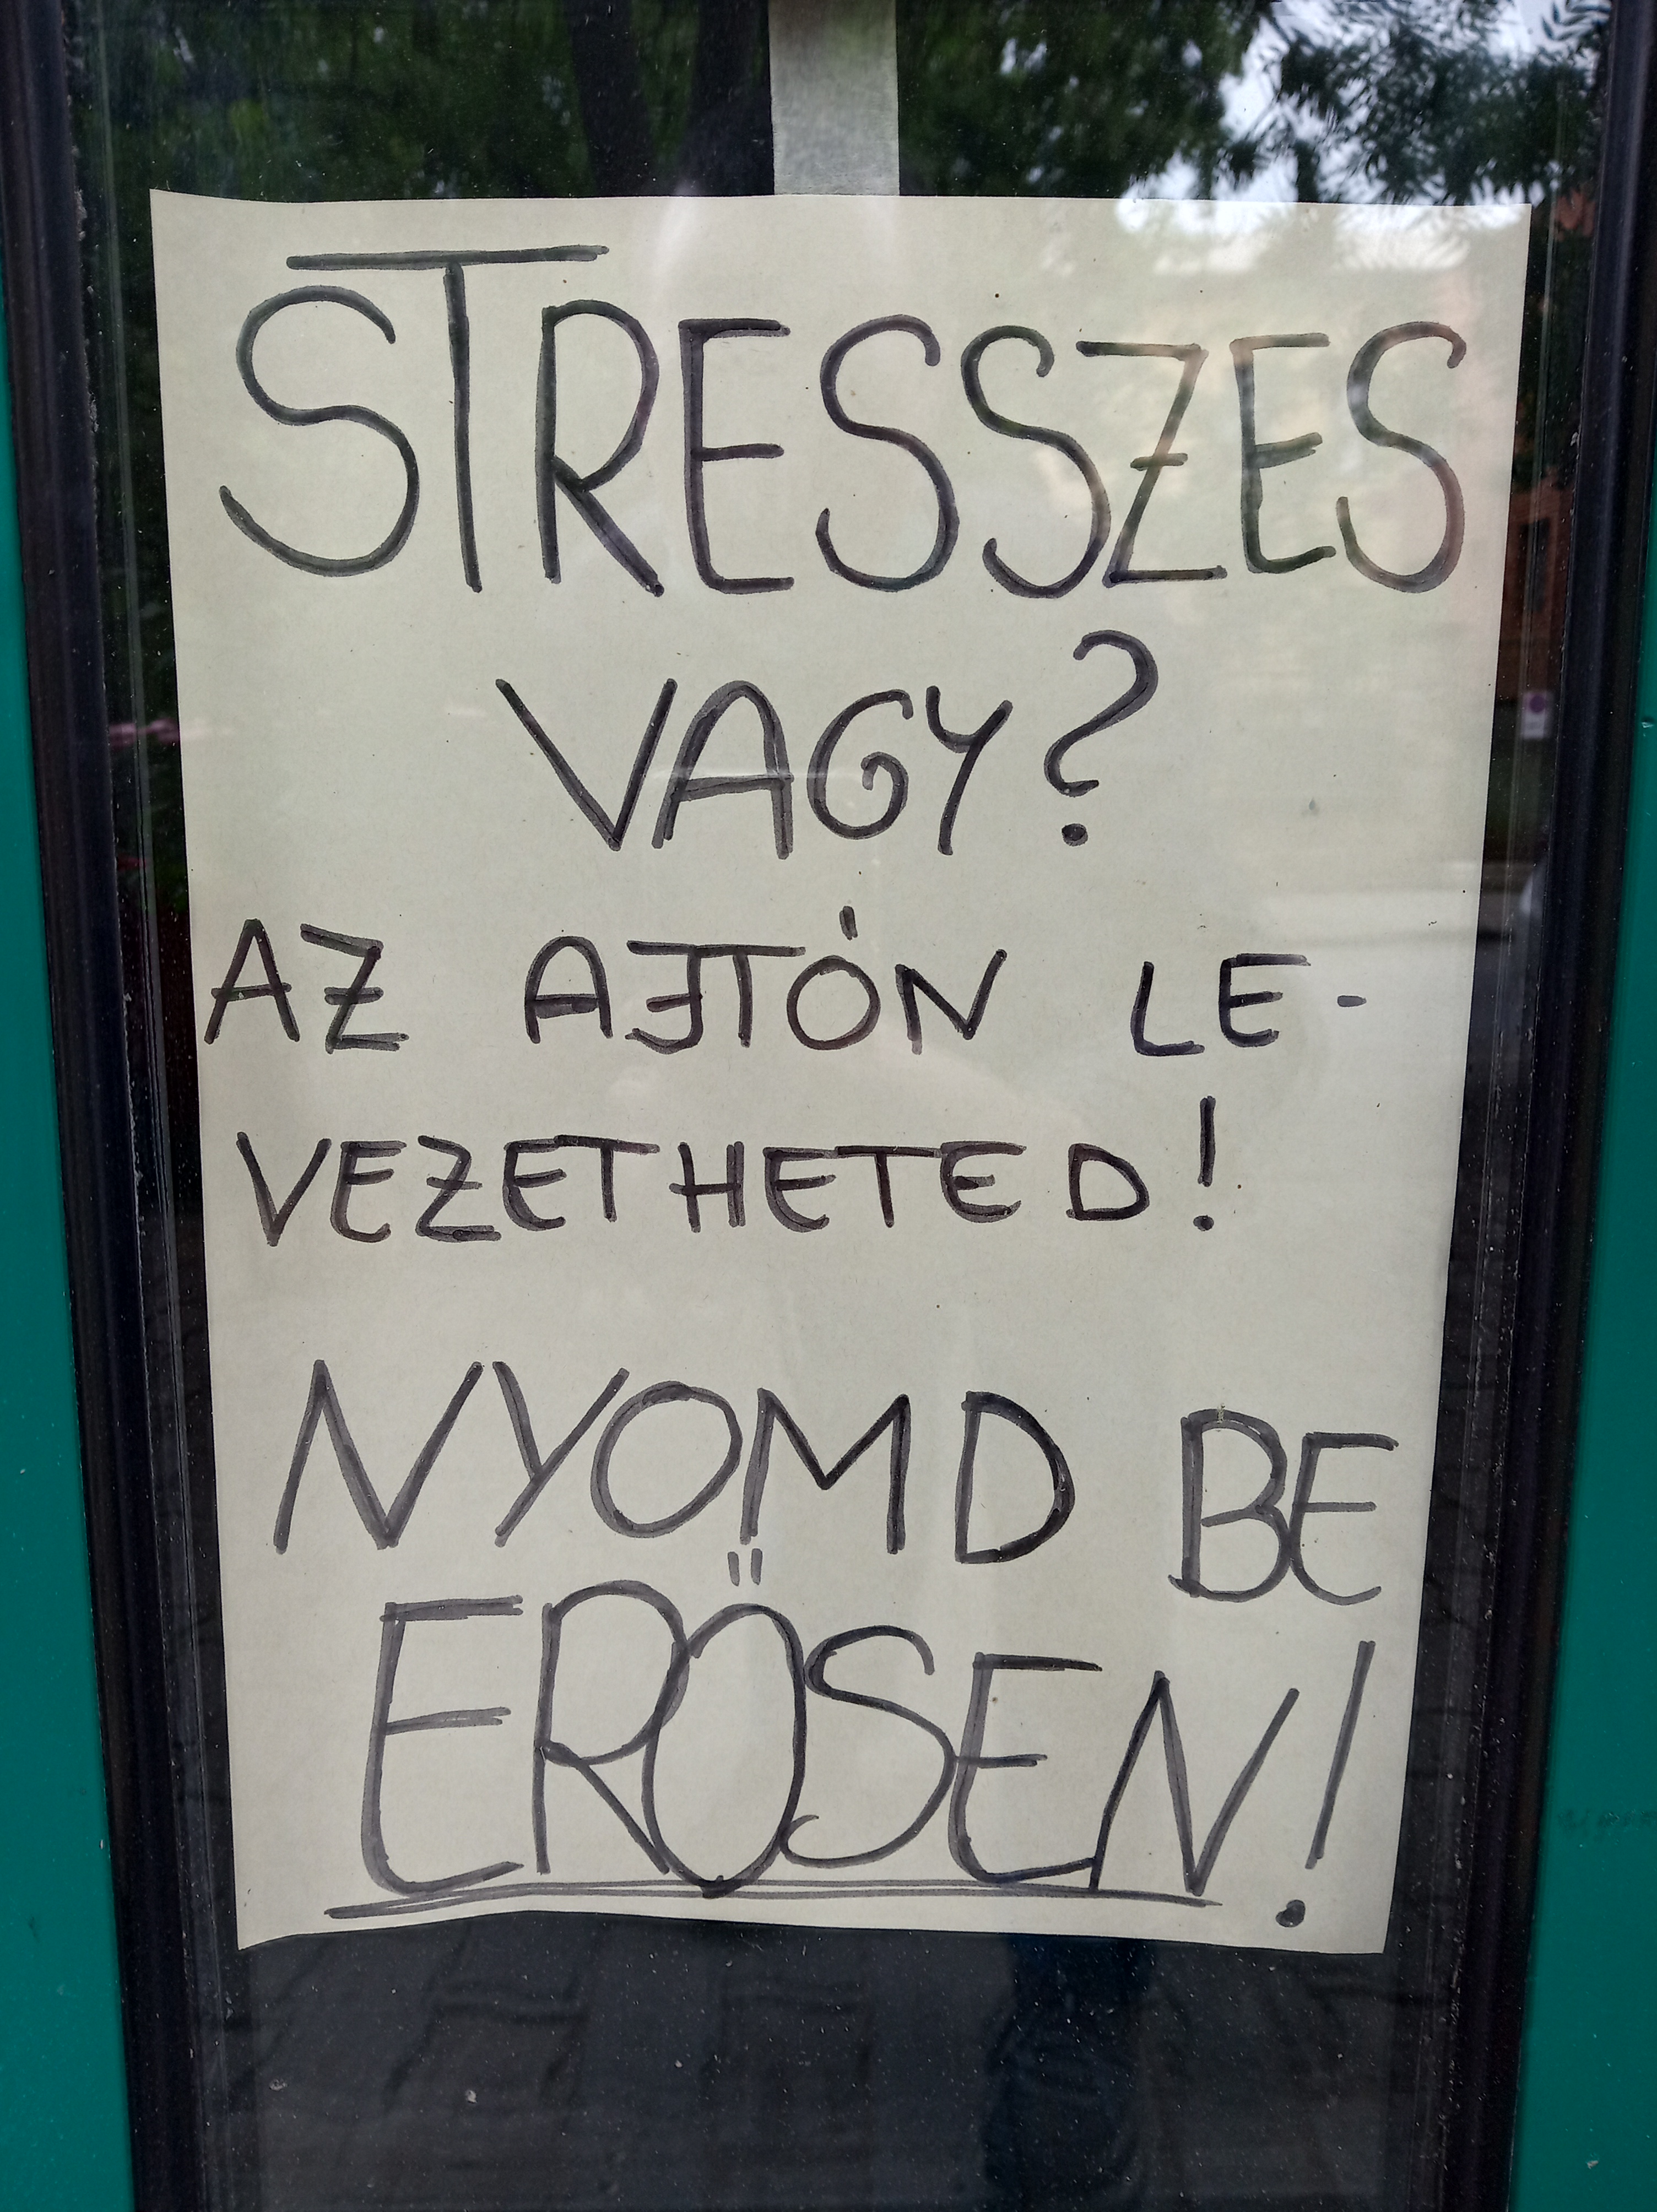 STRESSZES
VAGY?
AZ AJTÓN LE-
VEZETHETED!
NYOMD BE
ERŐSEN!